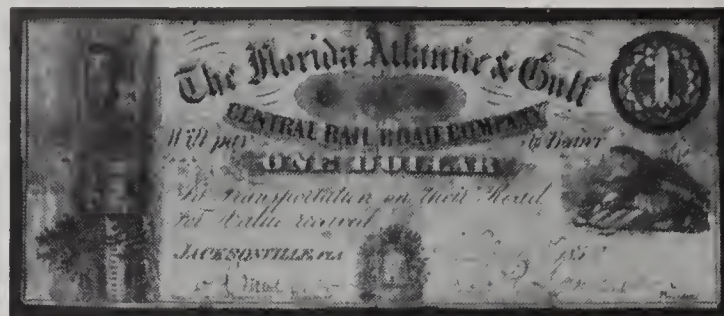 The Florida Atlantic & Gulf
1
CENTRAL RAIL ROAD COMPANY
Will pay to Bearer
ONE DOLLAR
In Transportation on their Road
for Value received
JACKSONVILLE, FLA